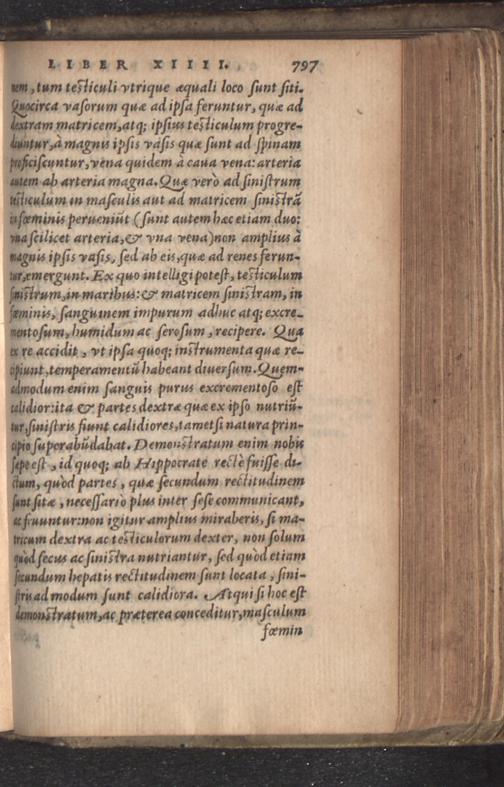 LIBER XIIII. 797
nem, tum testiculi vtrique æquali loco sunt siti.
Quocirca vasorum quæ ad ipsa feruntur, quæ ad
dextram matricem, atq; ipsius testiculum progre-
diuntur, à magnis ipsis vasis quæ sunt ad spinam
proficiscuntur, vena quidem à caua vena: arteria
autem ab arteria magna. Quæ verò ad sinistrum
testiculum in masculis aut ad matricem sinistrã
in fœminis perueniũt (sunt autem hæc etiam duo:
vna scilicet arteria, & vna vena) non amplius à
magnis ipsis vasis, sed ab eis, quæ ad renes ferun-
tur, emergunt. Ex quo intelligi potest, testiculum
sinistrum, in maribus: & matricem sinistram, in
fœminis, sanguinem impurum adhuc atq; excre-
mentosum, humidum ac serosum, recipere. Qua
ex re accidit, vt ipsa quoq; instrumenta quæ re-
cipiunt, temperamentũ habeant diuersum. Quem-
admodum enim sanguis purus excrementoso est
calidior: ita & partes dextræ quæ ex ipso nutriũ-
tur, sinistris fiunt calidiores, tametsi natura prin-
cipio superabũdabat. Demonstratum enim nobis
sæpe est, id quoq; ab Hippocrate rectè fuisse di-
ctum, quòd partes, quæ secundum rectitudinem
sunt sitæ, necessario plus inter sese communicant,
ac fruuntur: non igitur amplius miraberis, si ma-
tricum dextra ac testiculorum dexter, non solum
quòd secus ac sinistra nutriantur, sed quòd etiam
secundum hepatis rectitudinem sunt locata, sini-
stris admodum sunt calidiora. Atqui si hoc est
demonstratum, ac præterea conceditur, masculum
fœmin